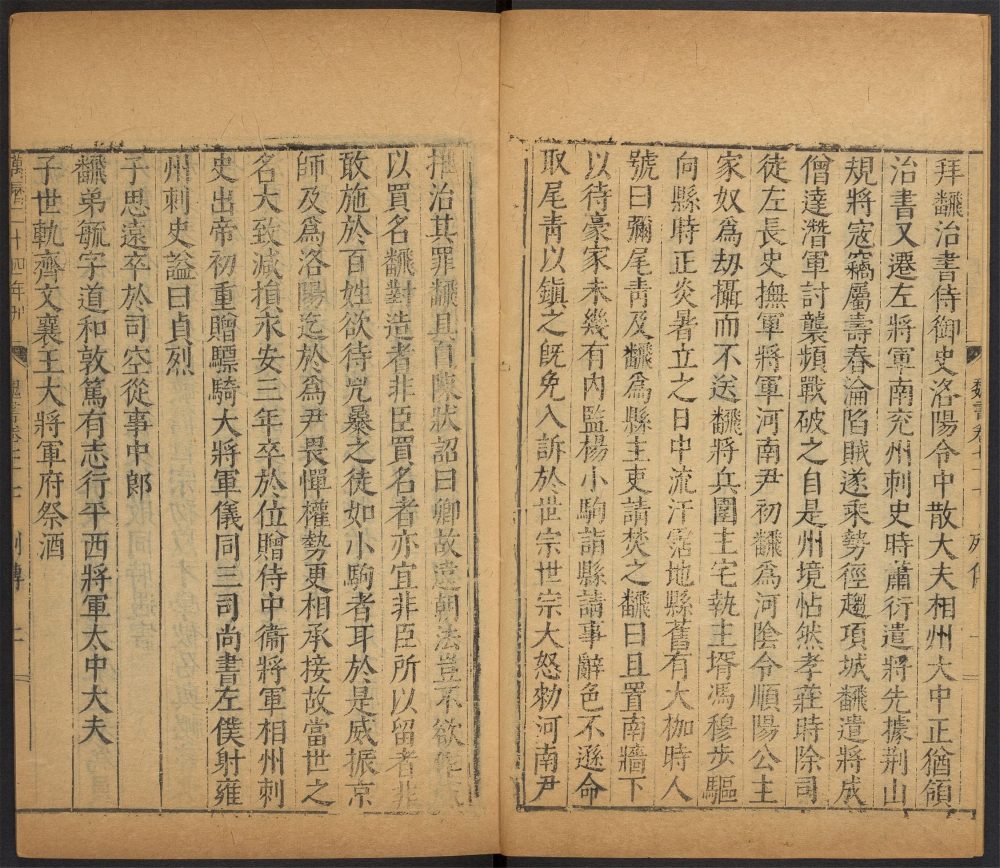 拜翻治書侍御史洛陽令中散大夫相州大中正猶領
治書又遷左將軍南兖州刺史時蕭衍遣將先據荆山
規將寇竊屬壽春淪陷賊遂乘勢徑趨項城翻遣將成
僧達潛軍討襲頻戰破之自是州境怗然孝莊時除司
徒左長史撫軍將軍河南尹初翻爲河陰令順陽公主
家奴爲劫攝而不送翻將兵圍主宅執主壻馮穆步驅
向縣時正炎暑立之日中流汗霑地縣舊有大枷時人
號曰彌尾靑及翻爲縣主吏請焚之翻曰且置南牆下
以待豪家未幾有内監楊小駒詣縣請事辭色不遜命
取尾靑以鎮之旣免入訴於世宗世宗大怒勑河南尹
推治其罪翻具自陳狀詔曰卿故違朝法豈不欲作
以買名翻對造者非臣買名者亦宜非臣所以留者非
敢施於百姓欲待兇暴之徒如小駒者耳於是威振京
師及爲洛陽迄於爲尹畏憚權勢更相承接故當世之
名大致减損永安三年卒於位贈侍中衞將軍相州刺
史出帝初重贈驃騎大將軍儀同三司尚書左僕射雍
州刺史謚曰貞烈
子思遠卒於司空從事中郎
翻弟毓字道和敦篤有志行平西將軍太中大夫
子世軌齊文襄王大將軍府祭酒
萬曆二十四年刊